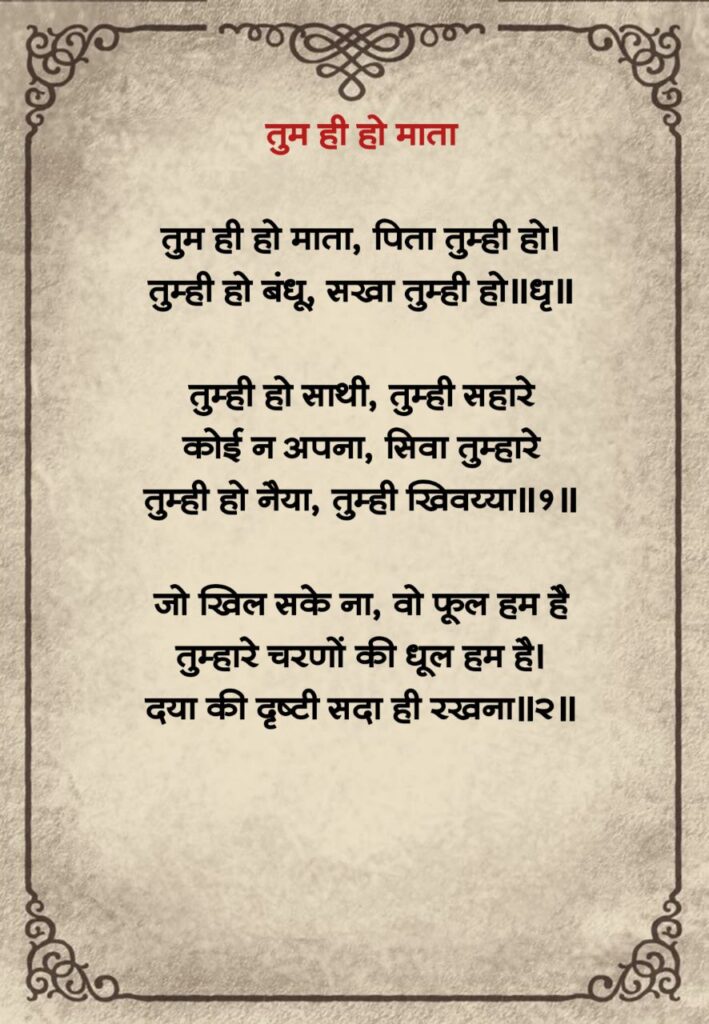 तुम ही हो माता
तुम ही हो माता, पिता तुम्ही हो।
तुम्ही हो बंधू, सखा तुम्ही हो॥धृ॥
तुम्ही हो साथी, तुम्ही सहारे
कोई न अपना, सिवा तुम्हारे
तुम्ही हो नैया, तुम्ही खिवय्या॥१॥
जो खिल सके ना, वो फूल हम है
तुम्हारे चरणों की धूल हम है।
दया की दृष्टी सदा ही रखना॥२॥